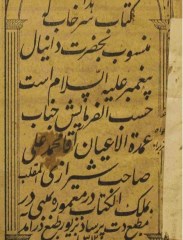 کتاب سرخاب که
منسوب بحضرت دانیال
پیغمبر علیه السلام است
حسب الفرمایش جناب
عمدة الاعیان آقا محمد علی
صاحب شیرازی الملقب
بملک الکتاب در معموره بمبئی در
مطبع بزیور طبع در آمد